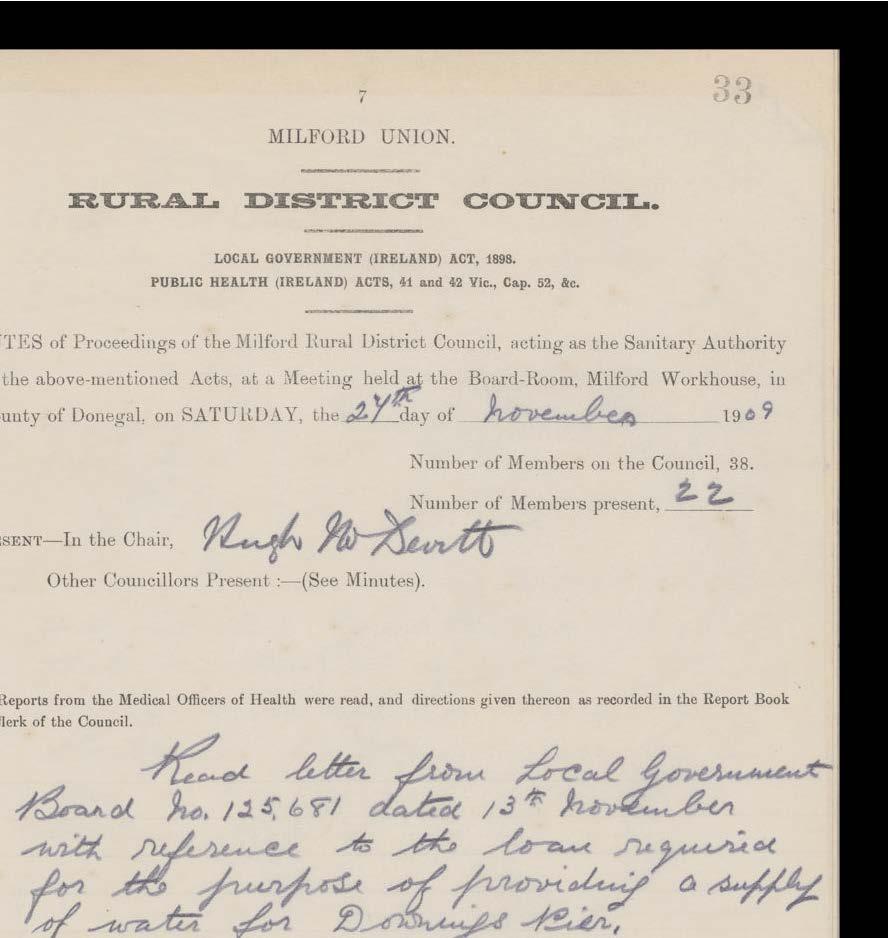 33
7
MILFORD UNION.
RURAL DISTRICT COUNCIL.
LOCAL GOVERNMENT (IRELAND) ACT, 1898.
PUBLIC HEALTH (IRELAND) ACTS, 41 and 42 Vic., Cap. 52, &c.
TES of Proceedings of the Milford Rural District Council, acting as the Sanitary Authority
the above-mentioned Acts, at a Meeting held at the Board-Room, Milford Workhouse, in
unty of Donegal, on SATURDAY, the 27th day of November 1909
Number of Members on the Council, 38.
Number of Members present, 22
SENT—In the Chair, Hugh McDevitt
Other Councillors Present :—(See Minutes).
Reports from the Medical Officers of Health were read, and directions given thereon as recorded in the Report Book
lerk of the Council.
Read letter from Local Government
Board No. 125,681 dated 13th November
with reference to the loan required
for the purpose of providing a supply
of water for Downings Pier.